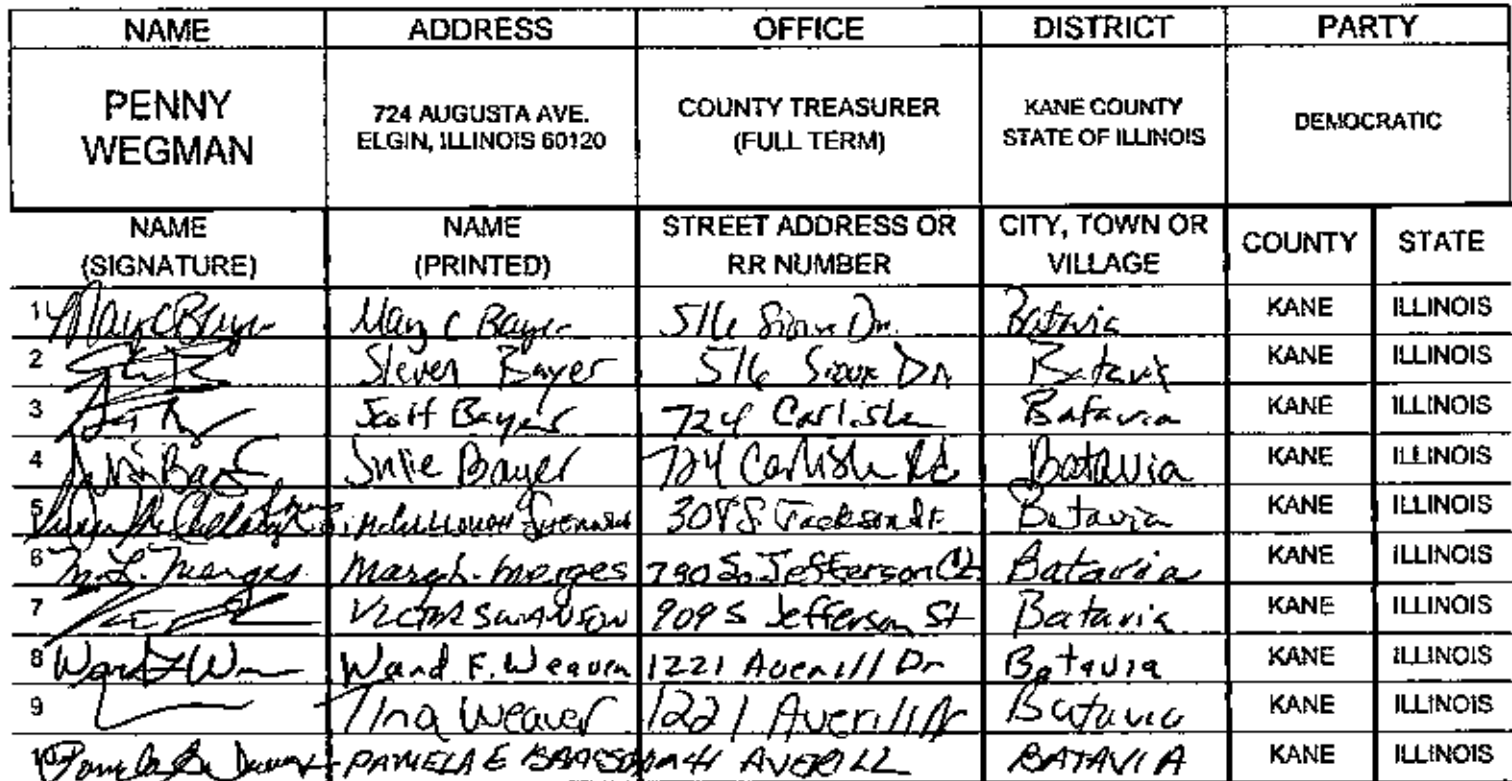 NAME ADDRESS OFFICE DISTRICT PARTY
PENNY WEGMAN 724 AUGUSTA AVE. ELGIN, ILLINOIS 60120 COUNTY TREASURER (FULL TERM) KANE COUNTY STATE OF ILLINOIS DEMOCRATIC
NAME (SIGNATURE) NAME (PRINTED) STREET ADDRESS OR RR NUMBER CITY, TOWN OR VILLAGE COUNTY STATE
1 Mary C Bayer Mary C Bayer 516 Sioux Dr. Batavia KANE ILLINOIS
2 Steven Bayer 516 Sioux Dr Batavia KANE ILLINOIS
3 Scott Bayer 724 Carlisle Batavia KANE ILLINOIS
4 Julie Bayer 724 Carlisle Rd Batavia KANE ILLINOIS
5 Jackson St Batavia KANE ILLINOIS
6 M. L. Merges Merges 790 So. Jefferson Batavia KANE ILLINOIS
7 VICTOR SWANSON 909 S Jefferson St Batavia KANE ILLINOIS
8 Ward F. Weaver 1221 Averill Dr Batavia KANE ILLINOIS
9 Tina Weaver 1221 Averill Dr Batavia KANE ILLINOIS
10 Pamela PAMELA E AVERILL BATAVIA KANE ILLINOIS